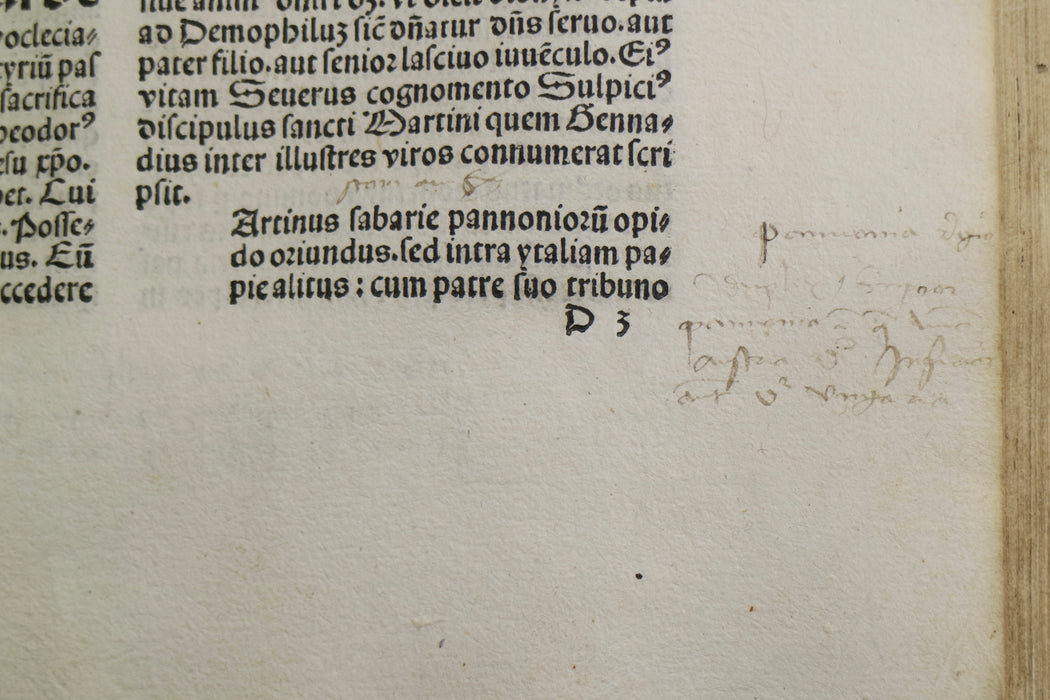 oclecia⸗
tyriū pas
sacrifica
heodorꝰ
esu xp̄o.
bet. Cui
. Posse⸗
us. Eū
ccedere
ad Demophiluꝫ sic̄ dn̄atur dn̄s seruo. aut
pater filio. aut senior lasciuo iuuēculo. Eiꝰ
vitam Seuerus cognomento Sulpiciꝰ
discipulus sancti Martini quem Genna⸗
dius inter illustres viros connumerat scri
psit.
Artinus sabarie pannoniorū opi⸗
do oriundus. sed intra ytaliam pa⸗
pie alitus : cum patre suo tribuno
D 3
pannonia
pannonia
austria
vngaria